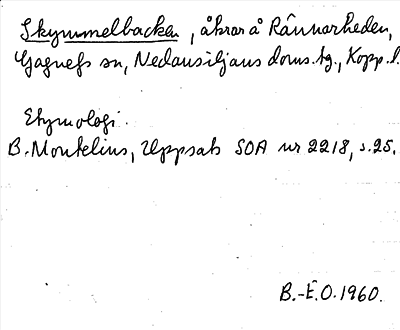 Skymmelbacken, åkrar å Rännarheden,
Gagnefs sn, Nedansiljans doms.tg., Kopp.l.
Etymologi.
B. Montelius, Uppsats SOA nr 2218, s.25.
B.-E.O.1960.